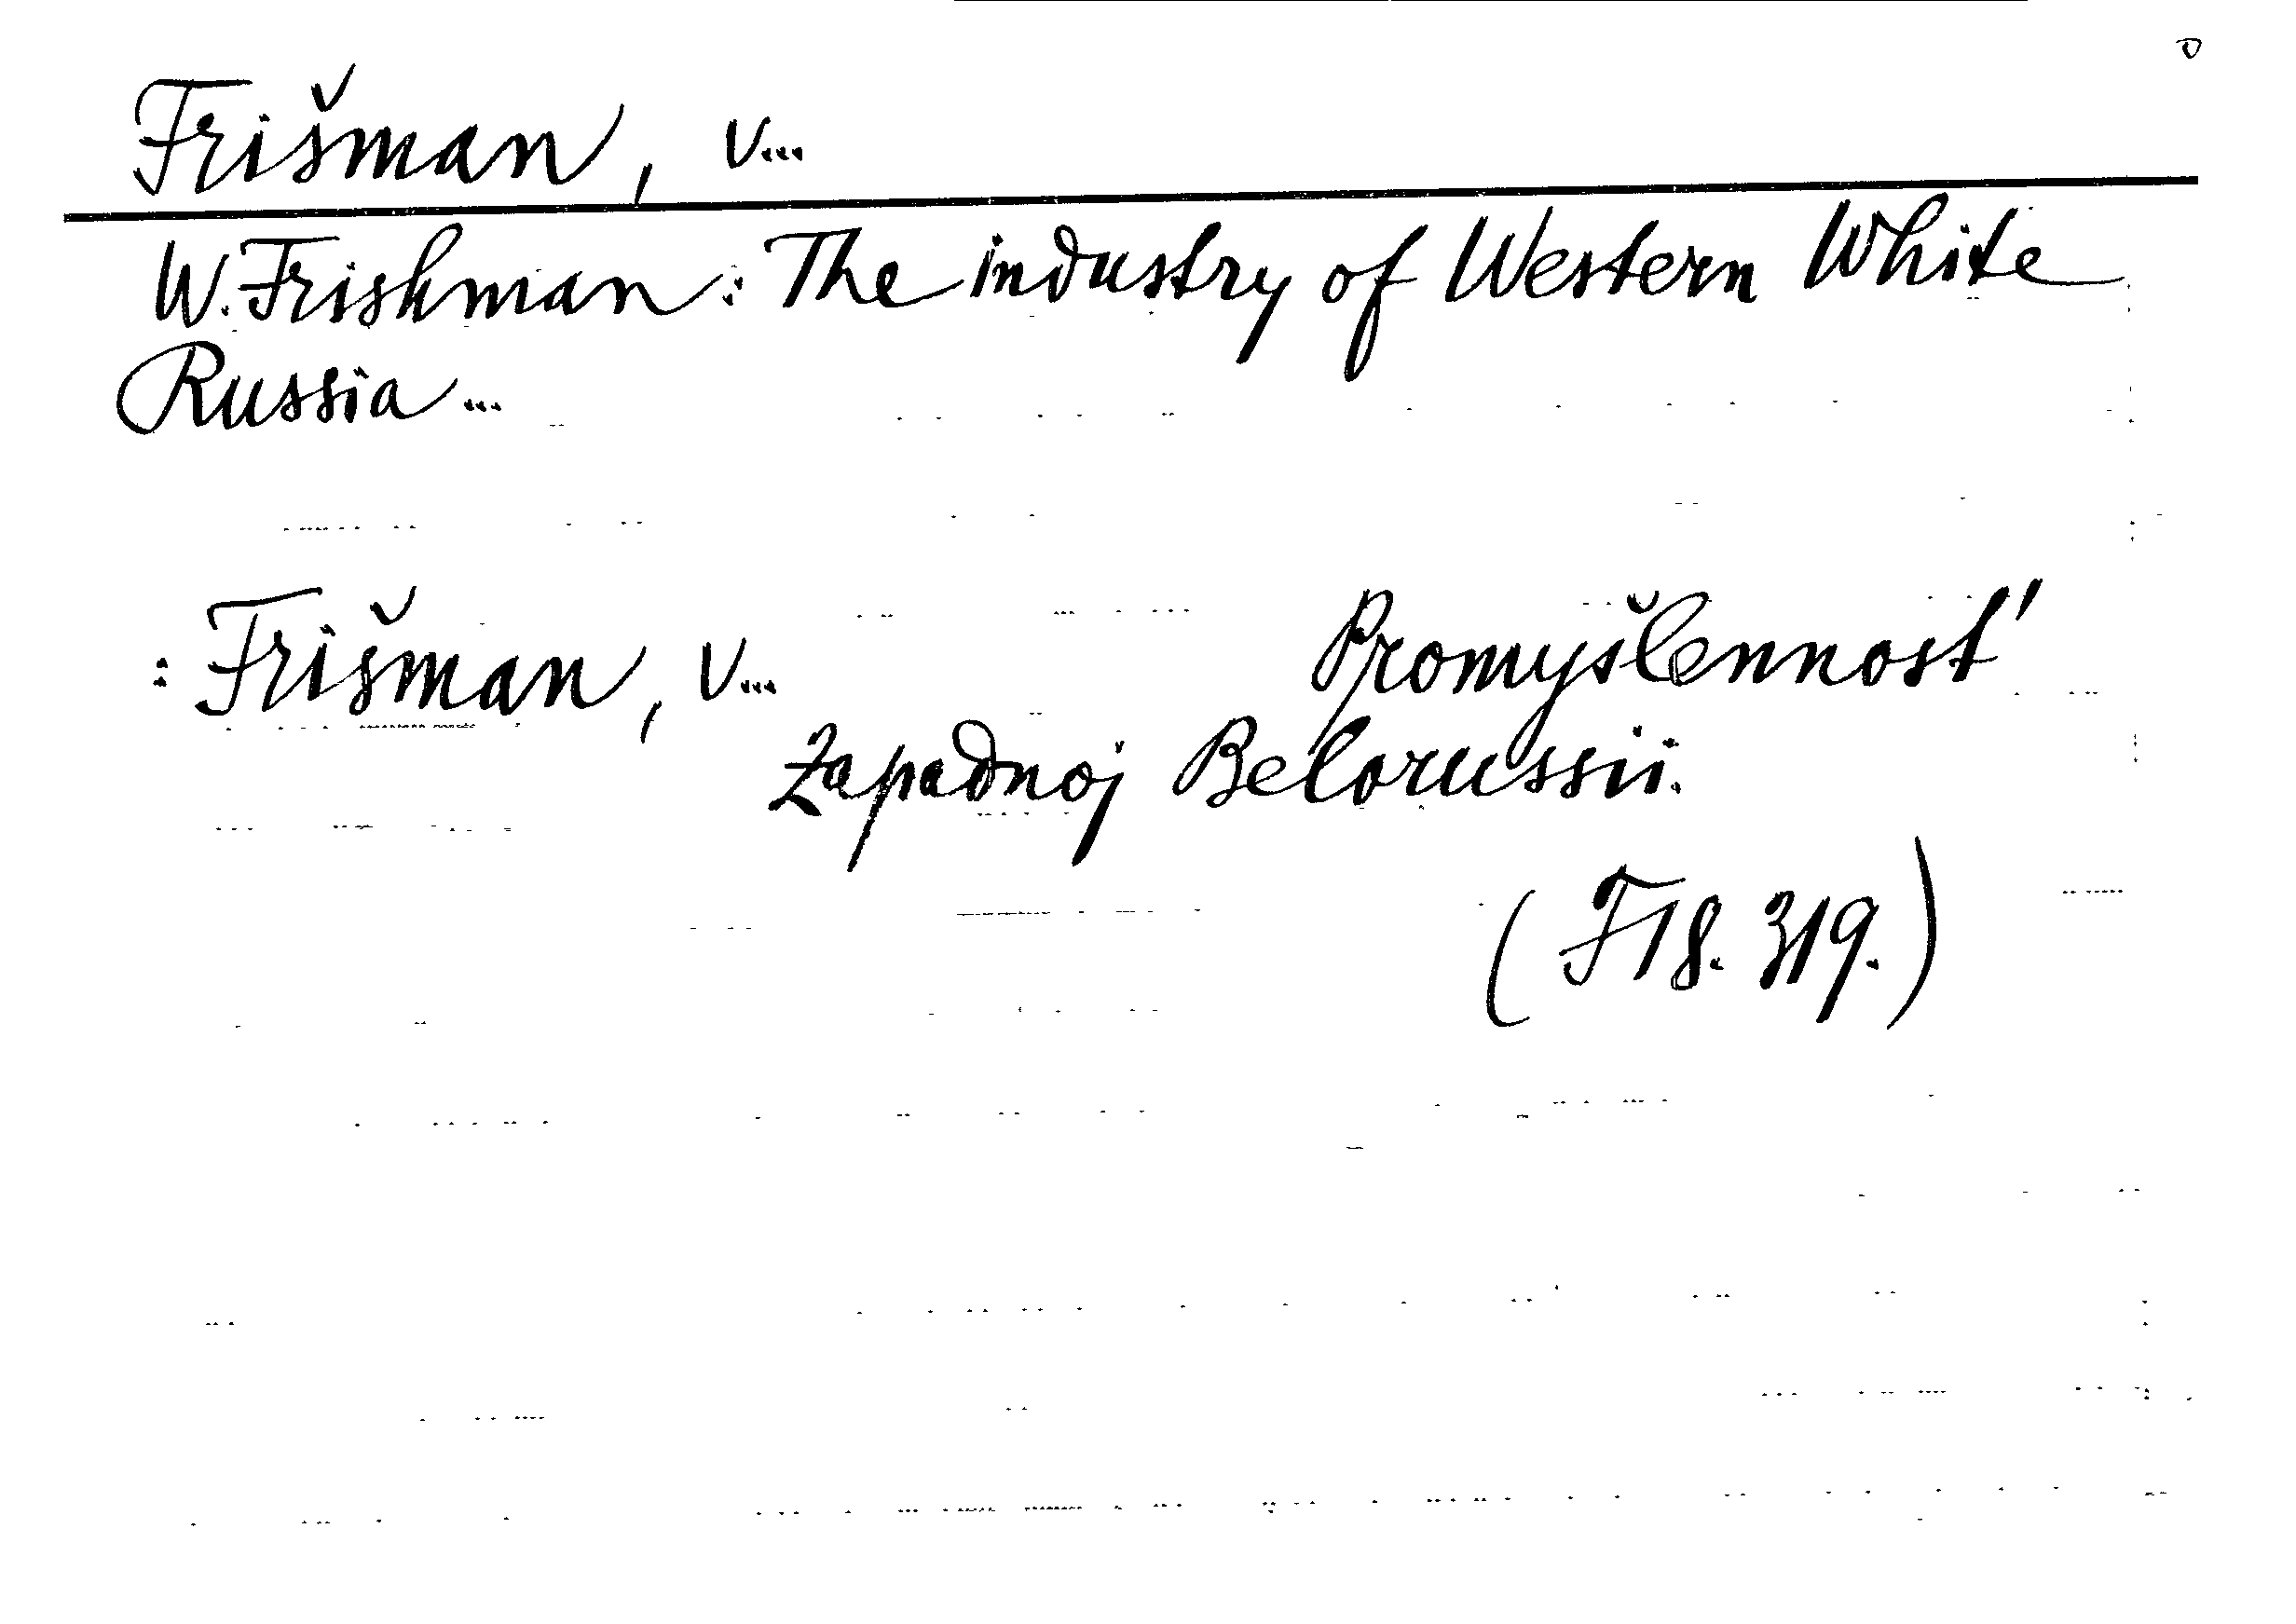 Frišman, V...
W. Frishman: The industry of Western White
Russia...
: Frišman, V... Promyšlennost'
Zapadnoj Belorussii.
(F18. 319.)